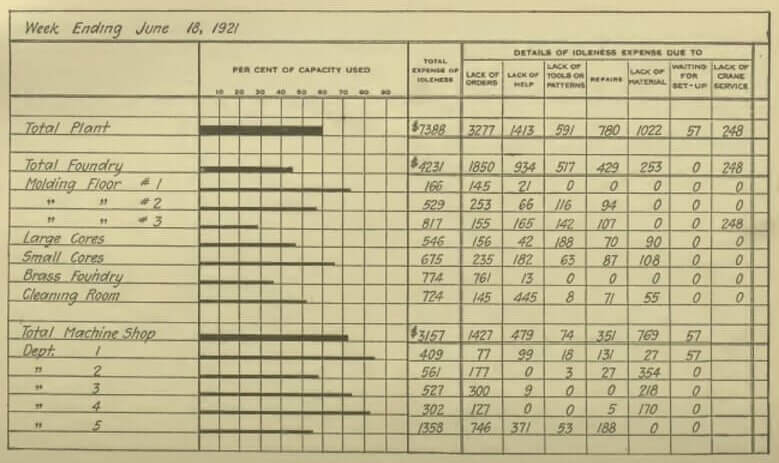 Week Ending June 18, 1921
PER CENT OF CAPACITY USED
10 20 30 40 50 60 70 80 90
TOTAL EXPENSE OF IDLENESS
DETAILS OF IDLENESS EXPENSE DUE TO
LACK OF ORDERS
LACK OF HELP
LACK OF TOOLS OR PATTERNS
REPAIRS
LACK OF MATERIAL
WAITING FOR SET-UP
LACK OF CRANE SERVICE
Total Plant $7388 3277 1413 591 780 1022 57 248
Total Foundry $4231 1850 934 517 429 253 0 248
Molding Floor #1 166 145 21 0 0 0 0 0
" " #2 529 253 66 116 94 0 0 0
" " #3 817 155 165 142 107 0 0 248
Large Cores 546 156 42 188 70 90 0 0
Small Cores 675 235 182 63 87 108 0 0
Brass Foundry 774 761 13 0 0 0 0 0
Cleaning Room 724 145 445 8 71 55 0 0
Total Machine Shop $3157 1427 479 74 351 769 57
Dept. 1 409 77 99 18 131 27 57
" 2 561 177 0 3 27 354 0
" 3 527 300 9 0 0 218 0
" 4 302 127 0 0 5 170 0
" 5 1358 746 371 53 188 0 0